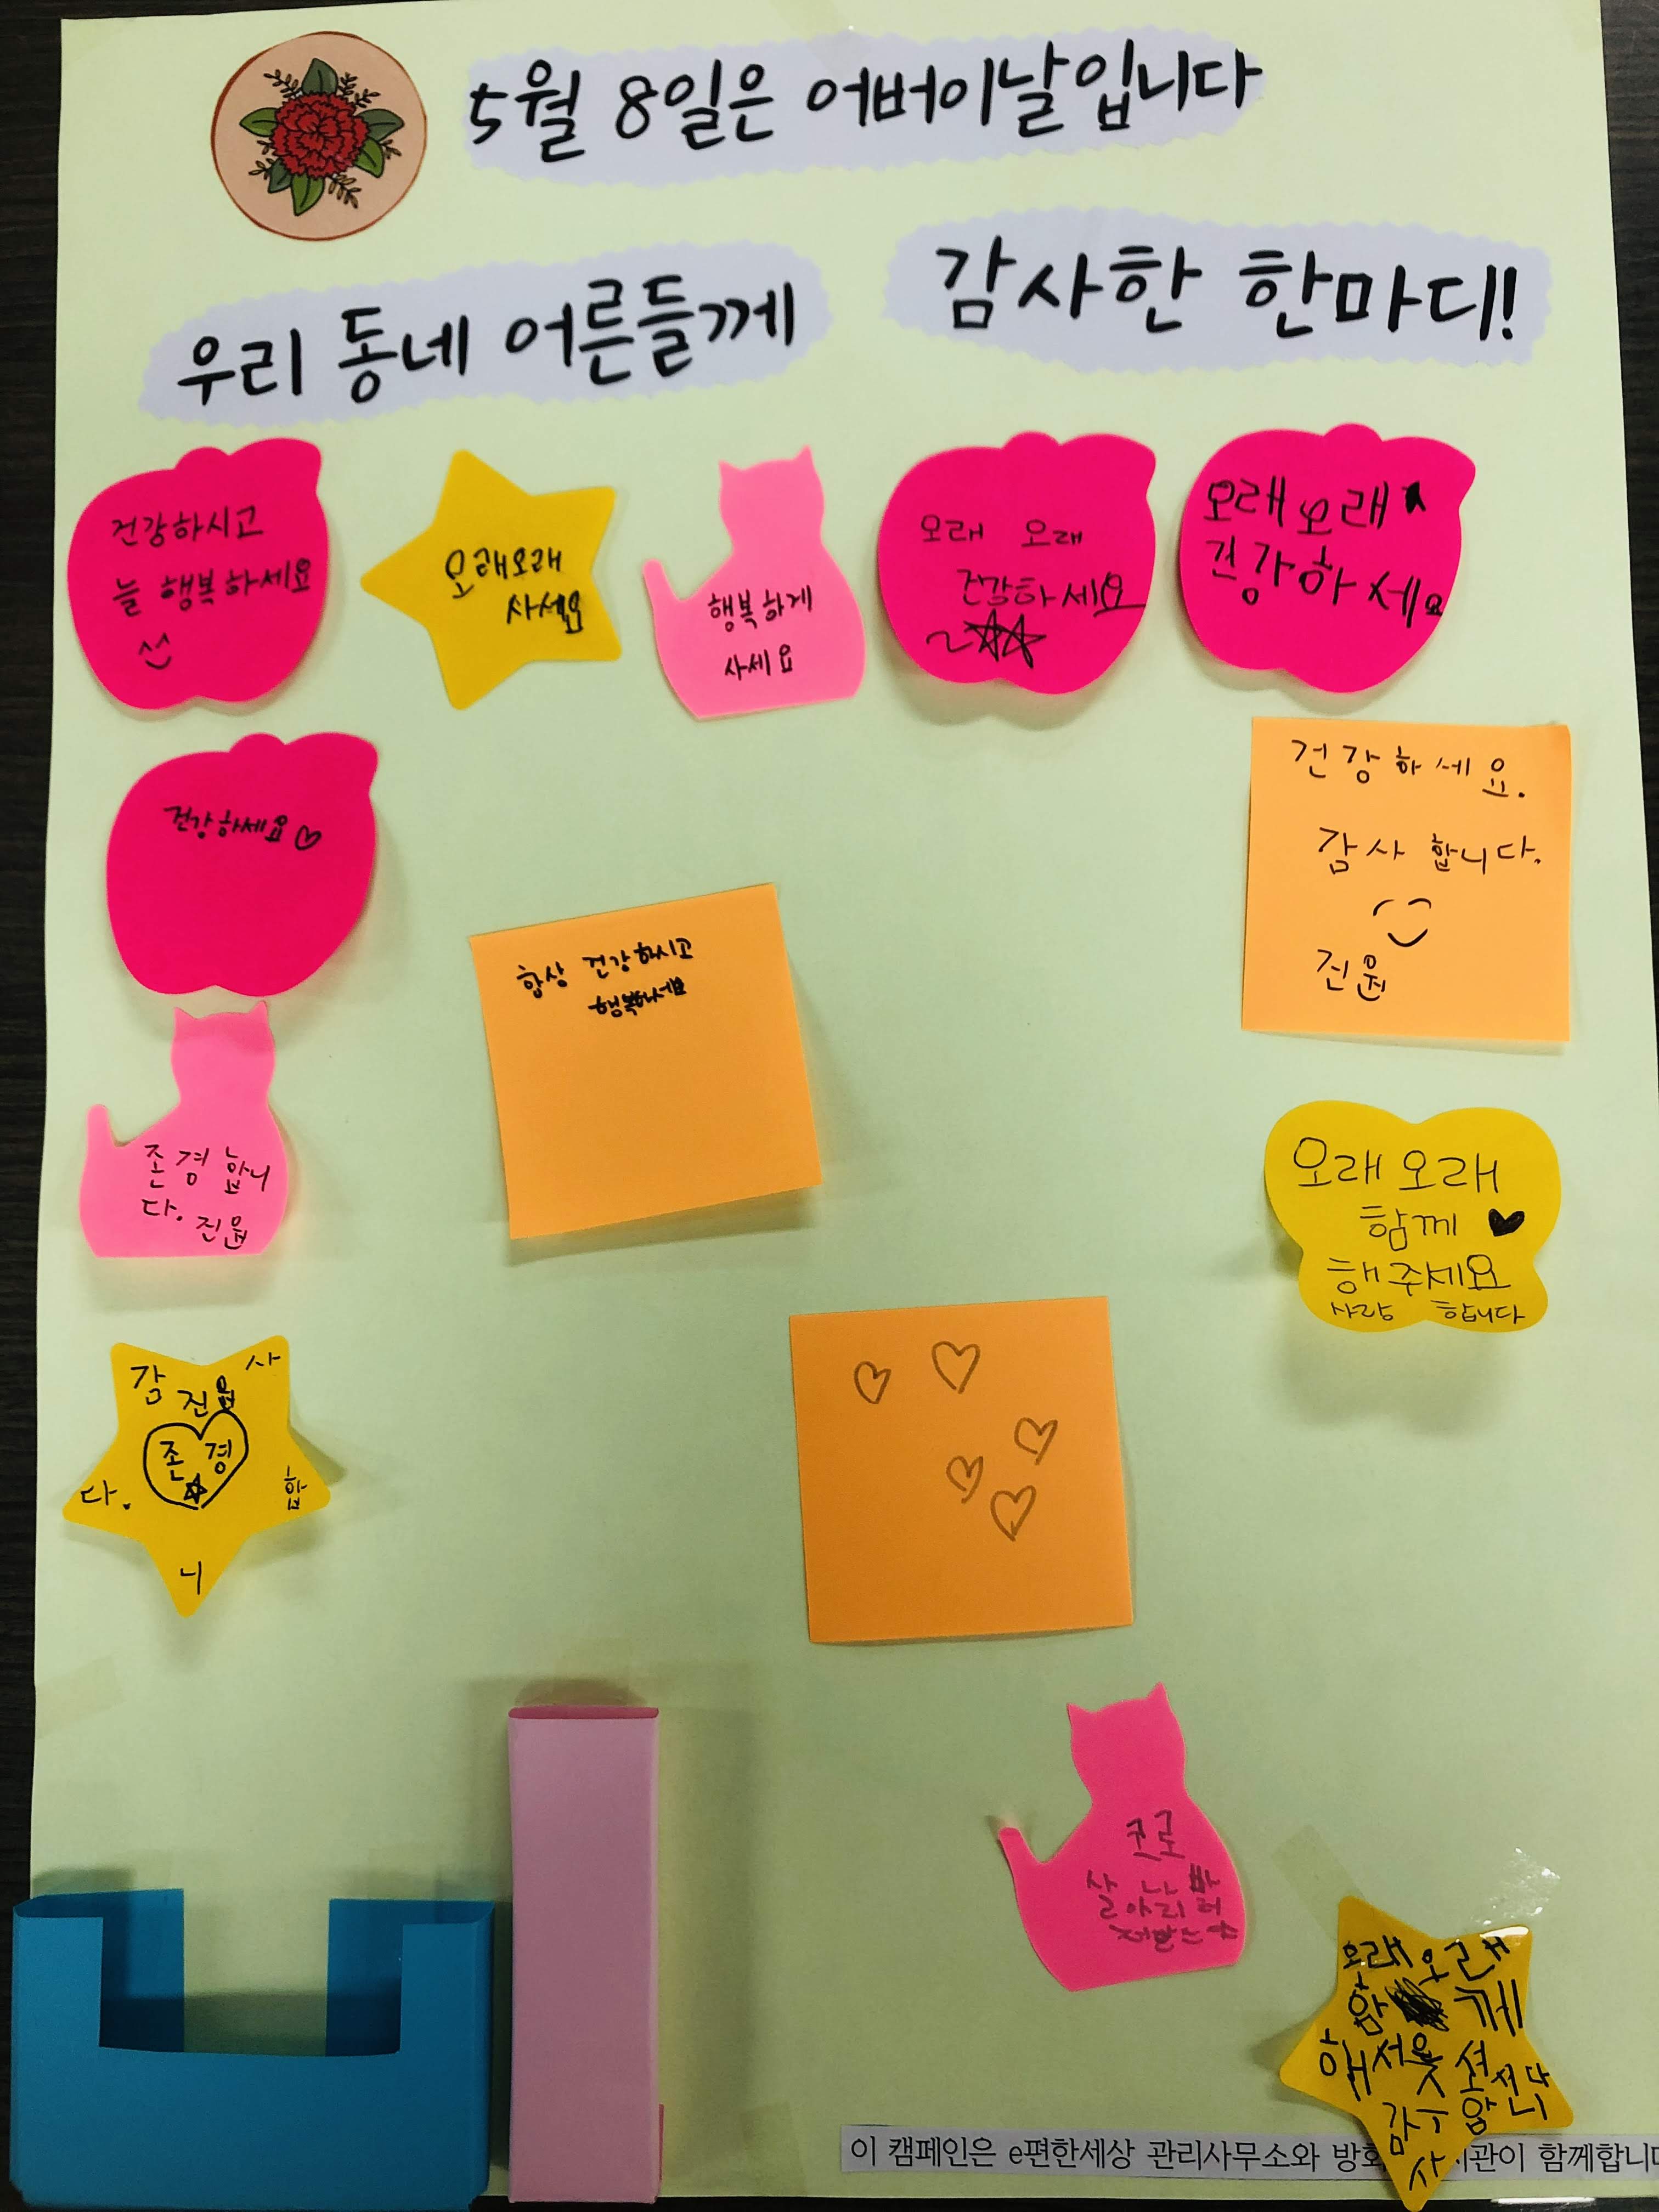 5월 8일은 어버이날입니다
우리 동네 어른들께
감사한 한마디!
건강하시고
늘 행복하세요
오래오래
사세요
행복하게
사세요
오래 오래
건강하세요
~
오래오래
건강하세요
건강하세요
건강하세요.
감사합니다.
진원
항상 건강하시고
행복하세요
존경합니
다. 진원
오래오래
함께
해주세요
사랑 합니다
감 사
진원
존경
다. 합
니
오래오래
함 께
이 캠페인은 e편한세상 관리사무소와 관이 함께합니다